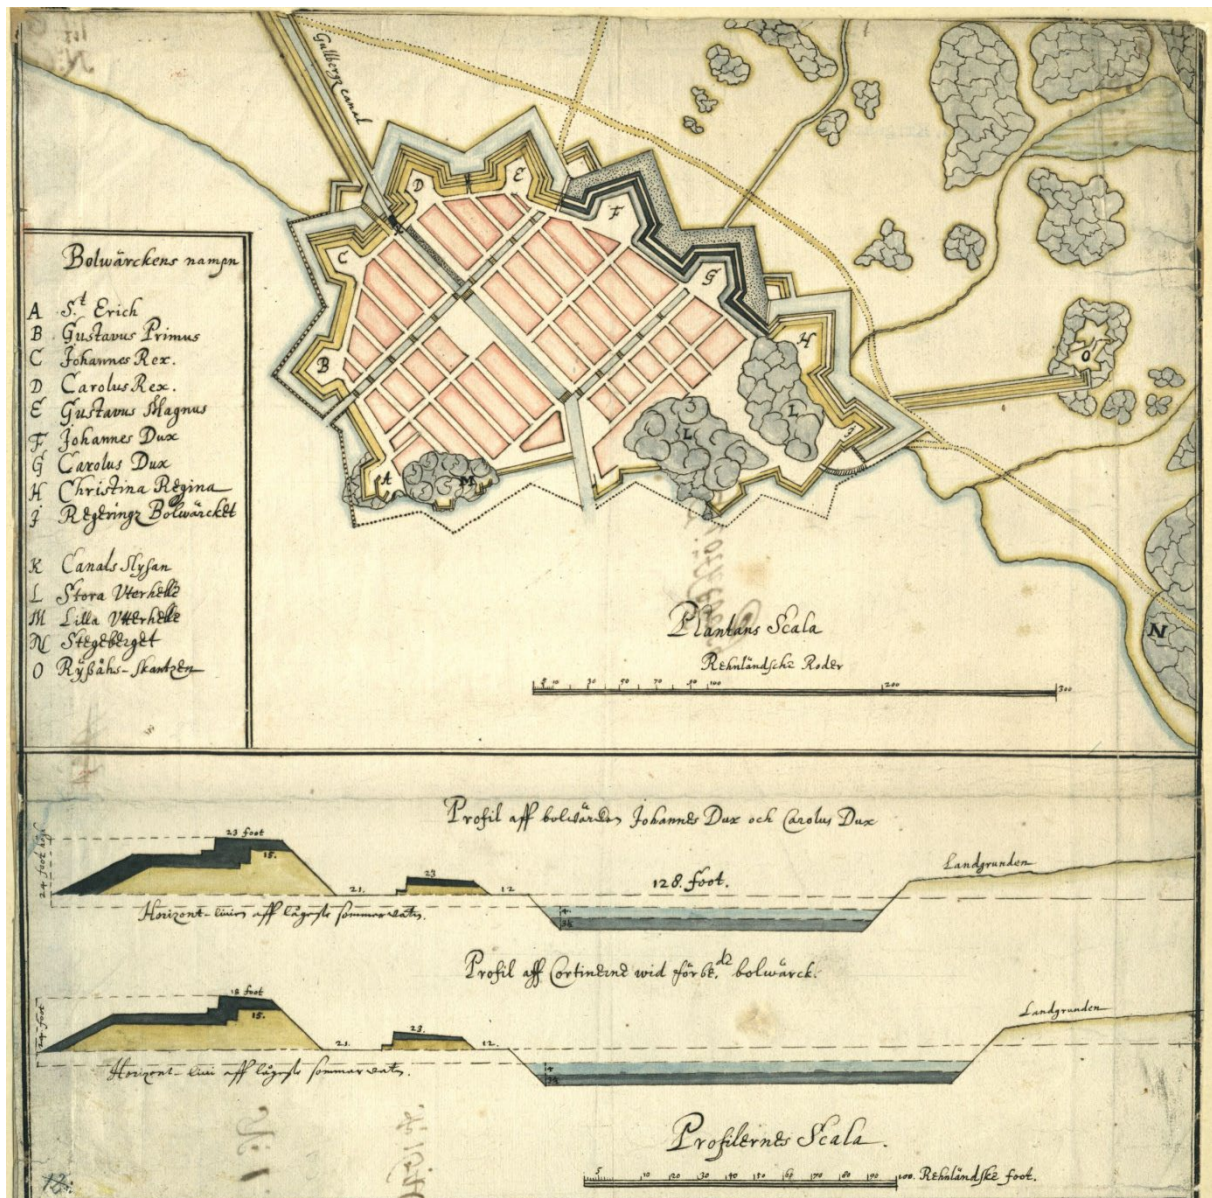 Gullbergz canal
D
E
F
C
G
B
H
O
J
L
L
A
M
N
Bolwärckens nampn
A St Erich
B Gustavus Primus
C Johannes Rex.
D Carolus Rex.
E Gustavus Magnus
F Johannes Dux
G Carolus Dux
H Christina Regina
J Regeringz Bolwärcket
K Canals Slysan
L Stora Vterhelle
M Lilla Vtterhelle
N Stegeberget
O Ryßåhs-skantzen
Plantans Scala
Rehnländsche Roder
5 10 30 50 70 90 100 200 300
Profil aff bolwärcken Johannes Dux och Carolus Dux
24 foot högt
23 foot
15.
21.
23
12
128. foot.
Landgrunden
Horizont-linien aff lägeste sommar watn.
Profil aff Cortinerne wid förbe.de bolwärck.
24 foot
18 foot
15.
21.
23.
12.
Landgrunden
Horizont-linie aff lägeste sommar watn.
Profilernes Scala.
5 10 20 30 40 50 60 70 80 90 100. Rehnländske foot.
12.